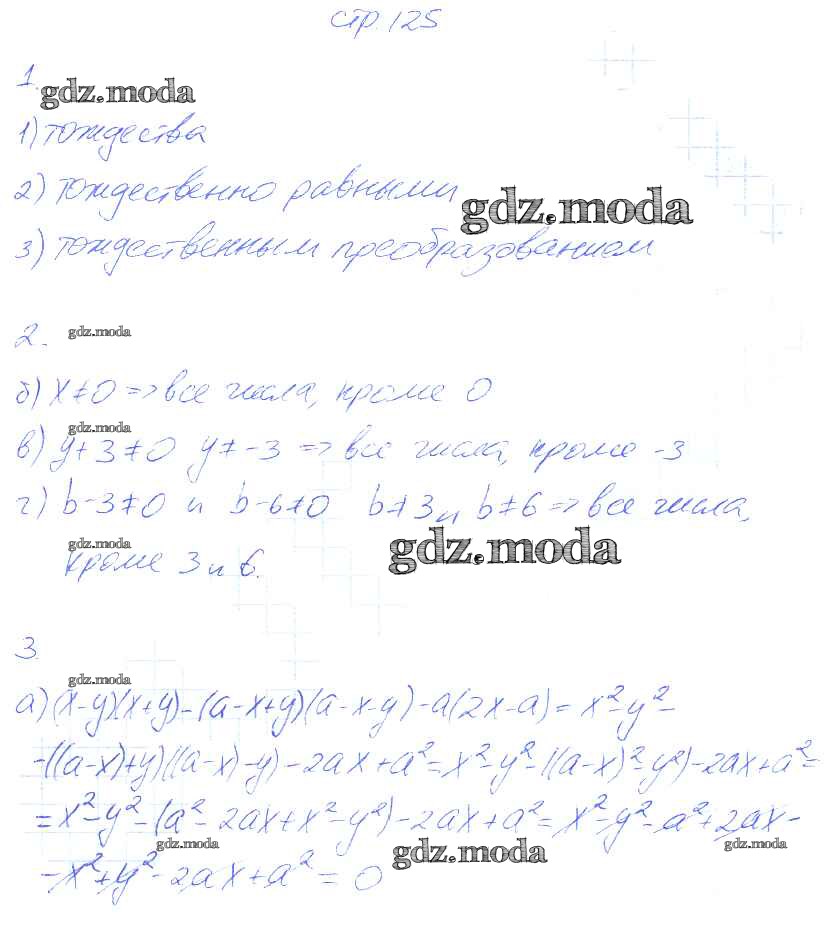 стр. 125
1.
gdz.moda
1) тождества
2) тождественно равными
gdz.moda
3) тождественным преобразованием
2.
gdz.moda
б) x≠0 => все числа, кроме 0
gdz.moda
в) y+3≠0 y≠-3 => все числа, кроме -3
г) b-3≠0 и b-6≠0 b≠3 и b≠6 => все числа,
gdz.moda
gdz.moda
кроме 3 и 6.
3.
gdz.moda
а) (x-y)(x+y)-(a-x+y)(a-x-y)-a(2x-a)=x²-y²-
-((a-x)+y)((a-x)-y)-2ax+a²=x²-y²-((a-x)²-y²)-2ax+a²=
=x²-y²-(a²-2ax+x²-y²)-2ax+a²=x²-y²-a²+2ax-
gdz.moda
gdz.moda
gdz.moda
-x²+y²-2ax+a²=0